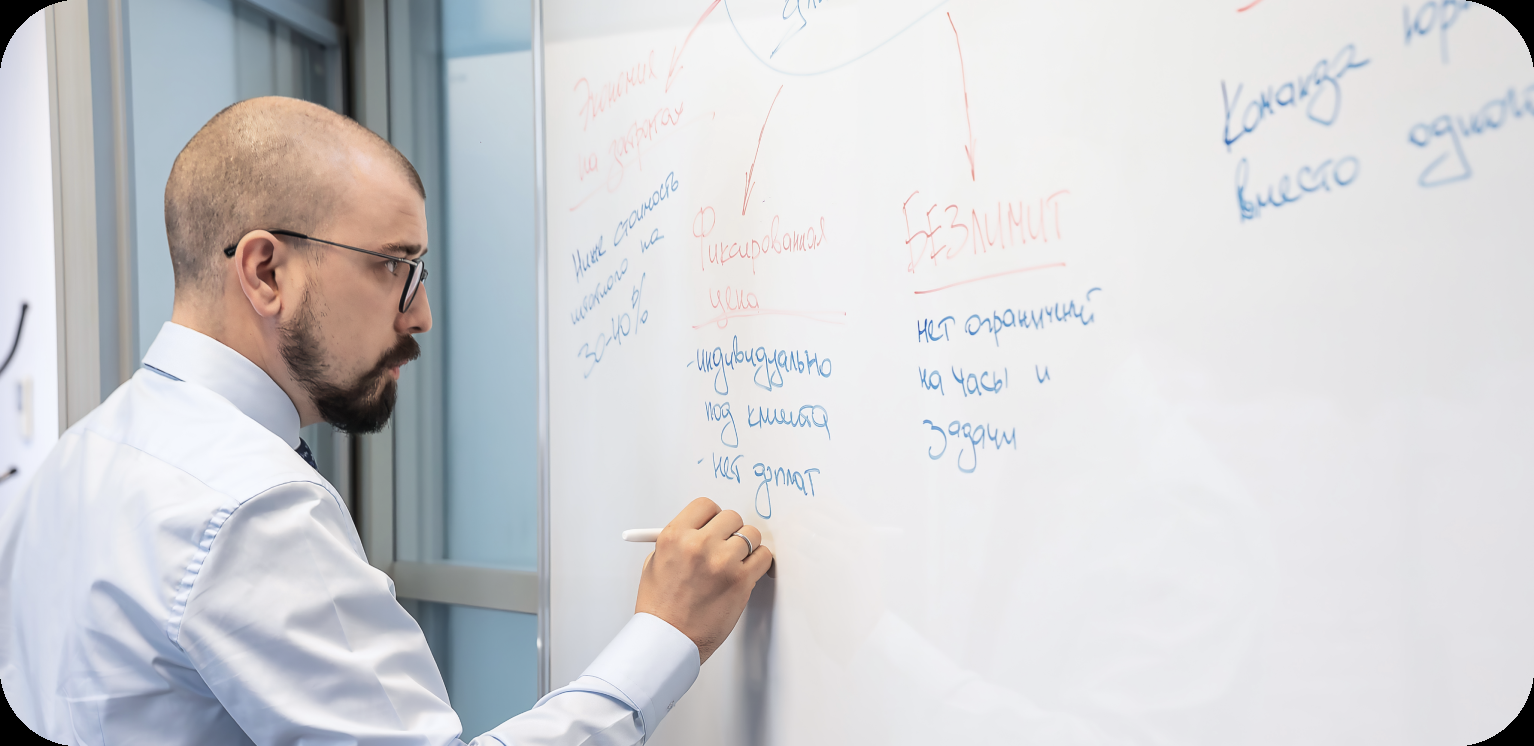 Экономия
на затратах
Ниже стоимость
штатного на
30-40%
Фиксированная
цена
-индивидуально
под клиента
-нет доплат
БЕЗЛИМИТ
нет ограничений
на часы и
задачи
Команда
вместо одного